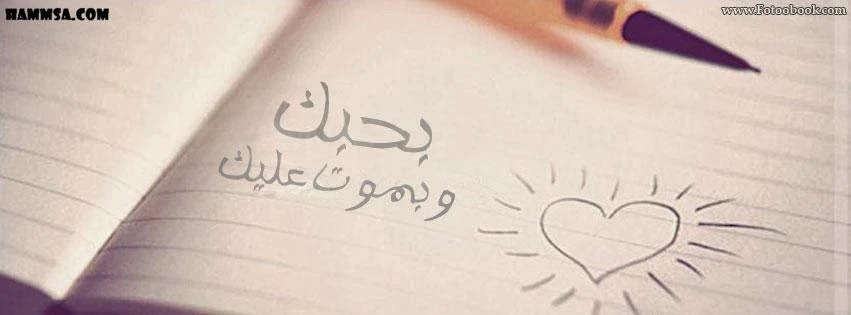 HAMMSA.COM
www.Fotoobook.com
بحبك
وبموت عليك